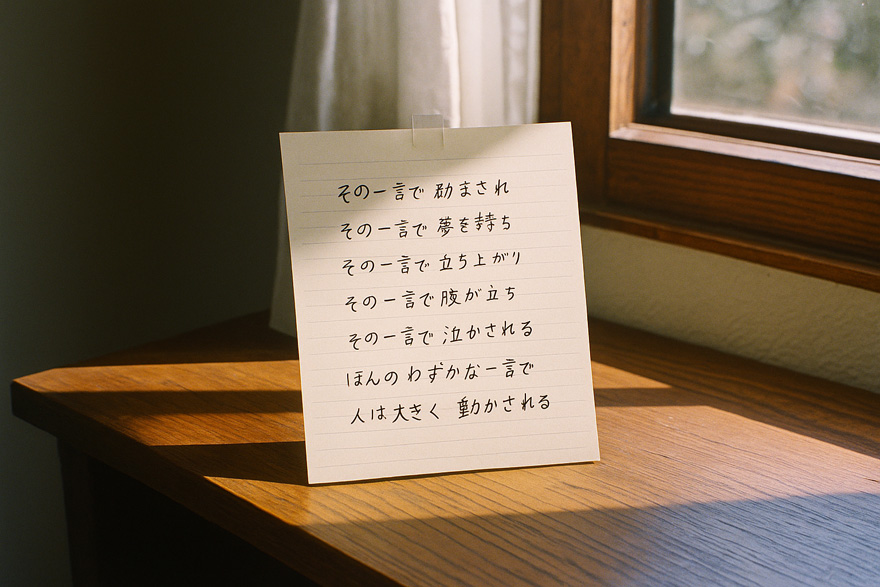 その一言で 励まされ
その一言で 夢を持ち
その一言で 立ち上がり
その一言で 腹が立ち
その一言で 泣かされる
ほんの わずかな一言で
人は大きく 動かされる